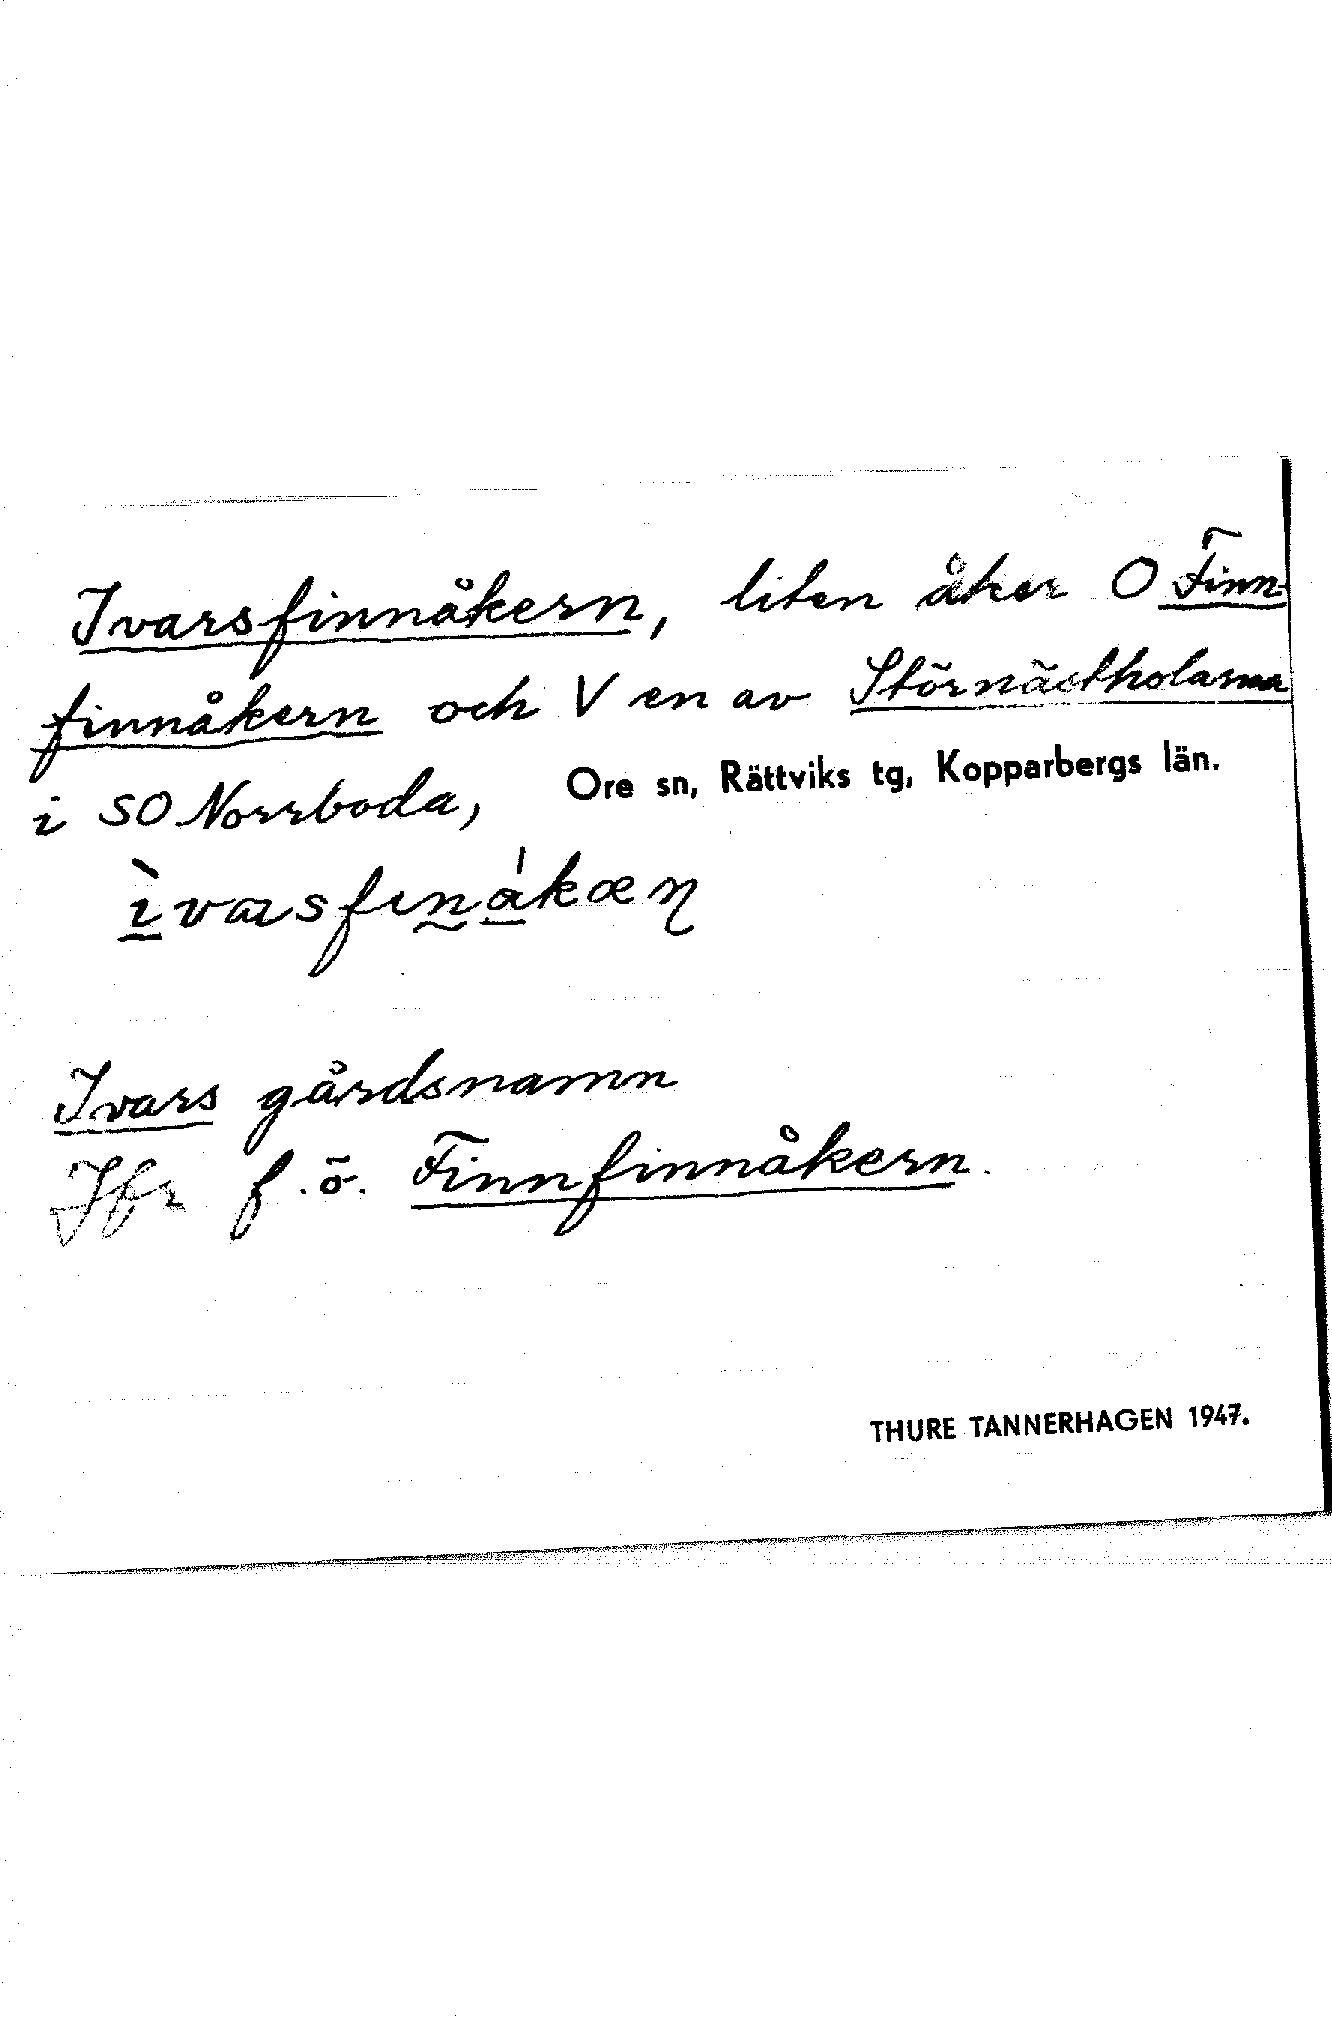 Ivarsfinnåkern, liten åker O Finn-
finnåkern och V en av Störnästholarna
i SO Norrboda, Ore sn, Rättviks tg, Kopparbergs län.
Ivars gårdsnamn
Jfr f.ö. Finnfinnåkern.
THURE TANNERHAGEN 1947.